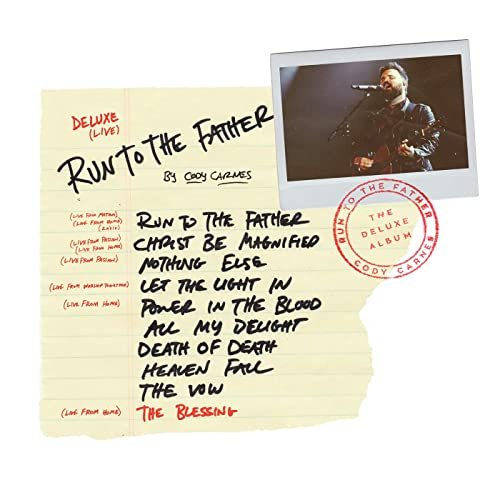 DELUXE
(LIVE)
RUN TO THE FATHER
BY CODY CARNES
(LIVE FROM
(LIVE FROM HOME)
RUN TO THE FATHER
(LIVE FROM PASSION)
(LIVE FROM HOME)
CHRIST BE MAGNIFIED
(LIVE FROM PASSION)
NOTHING ELSE
(LIVE FROM WORSHIP TOGETHER)
LET THE LIGHT IN
(LIVE FROM HOME)
POWER IN THE BLOOD
ALL MY DELIGHT
DEATH OF DEATH
HEAVEN FALL
THE VOW
(LIVE FROM HOME)
THE BLESSING
RUN TO THE FATHER
THE
DELUXE
ALBUM
CODY CARNES